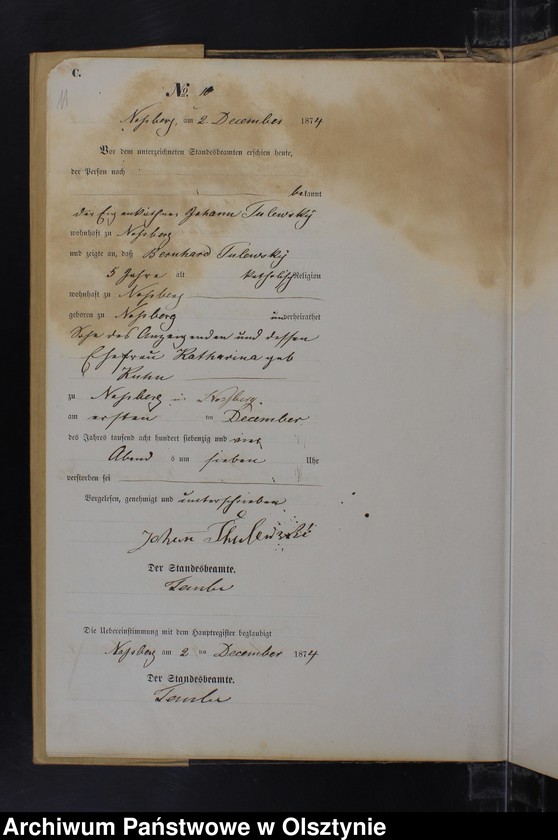 C.
11
No. 10
Noßberg, am 2 December 1874
Vor dem unterzeichneten Standesbeamten erschien heute,
der Person nach
bekannt
der Eigenkäthner Johann Tulewsky
wohnhaft zu Noßberg
und zeigte an, daß Bernhard Tulewsky
5 Jahre alt katholischer Religion
wohnhaft zu Noßberg
geboren zu Noßberg unverheirathet
Sohn des Anzeigenden und dessen
Ehefrau Katharina geb
Kuhn
zu Noßberg in Noßberg.
am ersten ten December
des Jahres tausend acht hundert siebenzig und vier
Abend s um sieben Uhr
verstorben sei
Vorgelesen, genehmigt und unterschrieben
Johann Thulewski
Der Standesbeamte.
Die Uebereinstimmung mit dem Hauptregister beglaubigt
Noßberg am 2 ten December 1874
Der Standesbeamte.
Archiwum Państwowe w Olsztynie